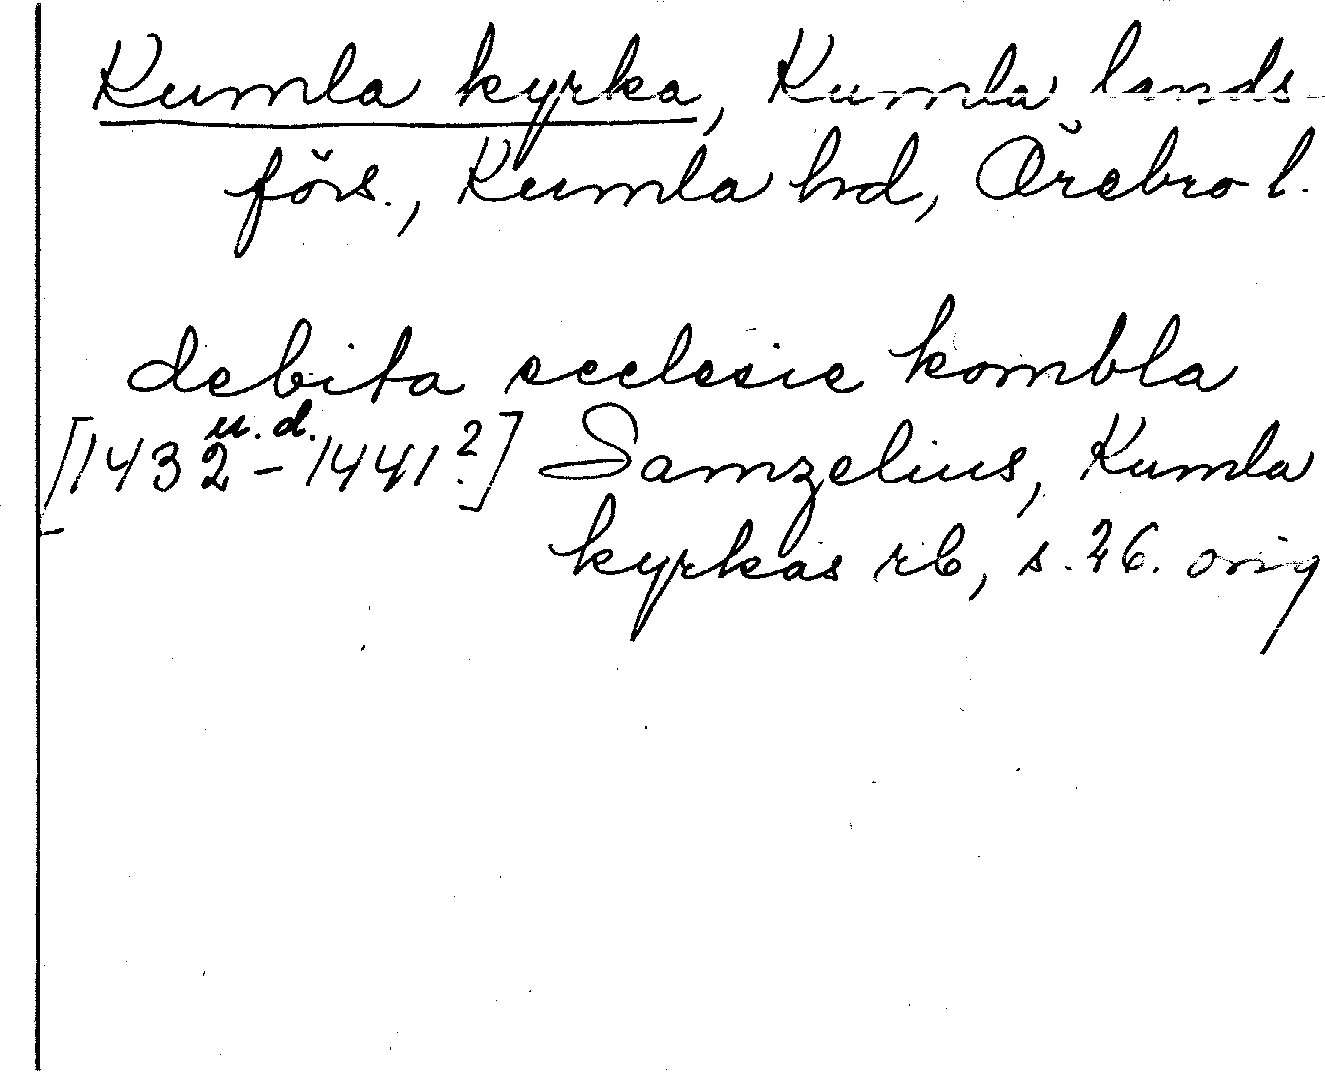 Kumla kyrka, Kumla lands
förs., Kumla hd, Örebro l.
debita ecclesie kombla
u. d.
[1432 - 1441?] Samzelius, Kumla
kyrkas rb, s. 26. orig